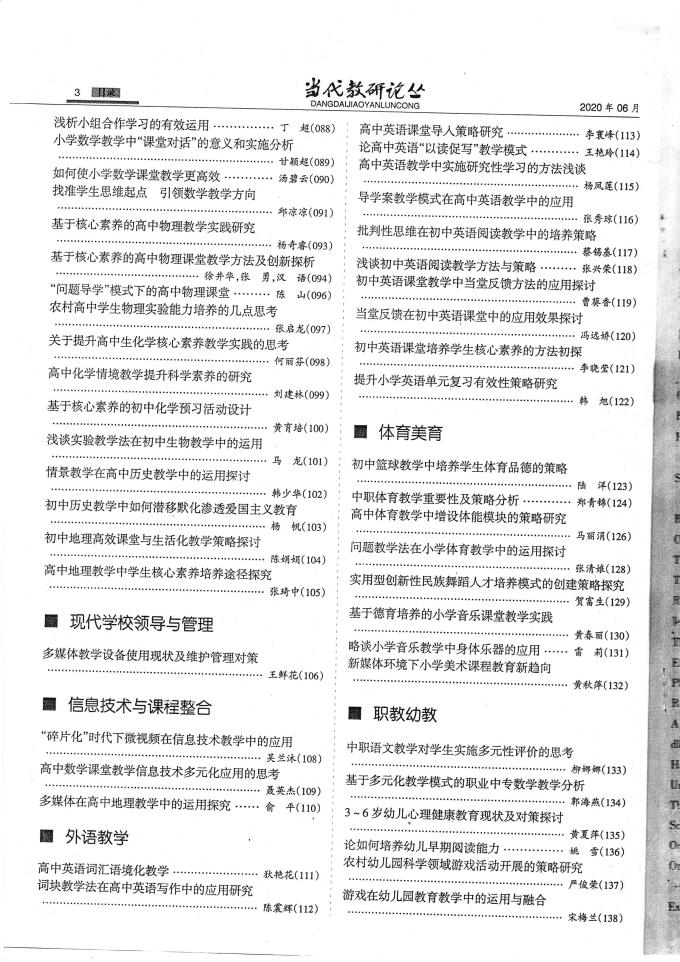 3 目录
当代教研论丛
DANGDAIJIAOYANLUNCONG
2020 年 06 月
浅析小组合作学习的有效运用 …………… 丁　超(088)
小学数学教学中“课堂对话”的意义和实施分析
…………………………………… 甘颖超(089)
如何使小学数学课堂教学更高效 ………… 汤碧云(090)
找准学生思维起点　引领数学教学方向
…………………………………… 邱凉凉(091)
基于核心素养的高中物理教学实践研究
…………………………………… 杨奇睿(093)
基于核心素养的高中物理课堂教学方法及创新探析
………………………… 徐井华,张　勇,汉　语(094)
“问题导学”模式下的高中物理课堂 ……… 陈　山(096)
农村高中学生物理实验能力培养的几点思考
…………………………………… 张启龙(097)
关于提升高中生化学核心素养教学实践的思考
…………………………………… 何丽芬(098)
高中化学情境教学提升科学素养的研究
…………………………………… 刘建林(099)
基于核心素养的初中化学预习活动设计
…………………………………… 黄育培(100)
浅谈实验教学法在初中生物教学中的运用
…………………………………… 马　龙(101)
情景教学在高中历史教学中的运用探讨
…………………………………… 韩少华(102)
初中历史教学中如何潜移默化渗透爱国主义教育
…………………………………… 杨　帆(103)
初中地理高效课堂与生活化教学策略探讨
…………………………………… 陈娟娟(104)
高中地理教学中学生核心素养培养途径探究
…………………………………… 张琦中(105)
■ 现代学校领导与管理
多媒体教学设备使用现状及维护管理对策
…………………………………… 王鲜花(106)
■ 信息技术与课程整合
“碎片化”时代下微视频在信息技术教学中的应用
…………………………………… 吴兰冰(108)
高中数学课堂教学信息技术多元化应用的思考
…………………………………… 聂英杰(109)
多媒体在高中地理教学中的运用探究 …… 俞　平(110)
■ 外语教学
高中英语词汇语境化教学 ……………… 狄艳花(111)
词块教学法在高中英语写作中的应用研究
…………………………………… 陈震辉(112)
高中英语课堂导入策略研究 …………… 李寰峰(113)
论高中英语“以读促写”教学模式 ……… 王艳玲(114)
高中英语教学中实施研究性学习的方法浅谈
…………………………………… 杨凤莲(115)
导学案教学模式在高中英语教学中的应用
…………………………………… 张秀琼(116)
批判性思维在初中英语阅读教学中的培养策略
…………………………………… 蔡锡基(117)
浅谈初中英语阅读教学方法与策略 ……… 张兴荣(118)
初中英语课堂教学中当堂反馈方法的应用探讨
…………………………………… 曹葵香(119)
当堂反馈在初中英语课堂中的应用效果探讨
…………………………………… 冯远娇(120)
初中英语课堂培养学生核心素养的方法初探
…………………………………… 李晓莹(121)
提升小学英语单元复习有效性策略研究
…………………………………… 韩　旭(122)
■ 体育美育
初中篮球教学中培养学生体育品德的策略
…………………………………… 陆　洋(123)
中职体育教学重要性及策略分析 ………… 郑青锦(124)
高中体育教学中增设体能模块的策略研究
…………………………………… 马丽涓(126)
问题教学法在小学体育教学中的运用探讨
…………………………………… 张清娘(128)
实用型创新性民族舞蹈人才培养模式的创建策略探究
…………………………………… 贺富生(129)
基于德育培养的小学音乐课堂教学实践
…………………………………… 黄春丽(130)
略谈小学音乐教学中身体乐器的应用 …… 雷　莉(131)
新媒体环境下小学美术课程教育新趋向
…………………………………… 黄秋萍(132)
■ 职教幼教
中职语文教学对学生实施多元性评价的思考
…………………………………… 柳娜娜(133)
基于多元化教学模式的职业中专数学教学分析
…………………………………… 郭海燕(134)
3～6 岁幼儿心理健康教育现状及对策探讨
…………………………………… 黄夏萍(135)
论如何培养幼儿早期阅读能力 ………… 姚　雪(136)
农村幼儿园科学领域游戏活动开展的策略研究
…………………………………… 严俊荣(137)
游戏在幼儿园教育教学中的运用与融合
…………………………………… 宋梅兰(138)